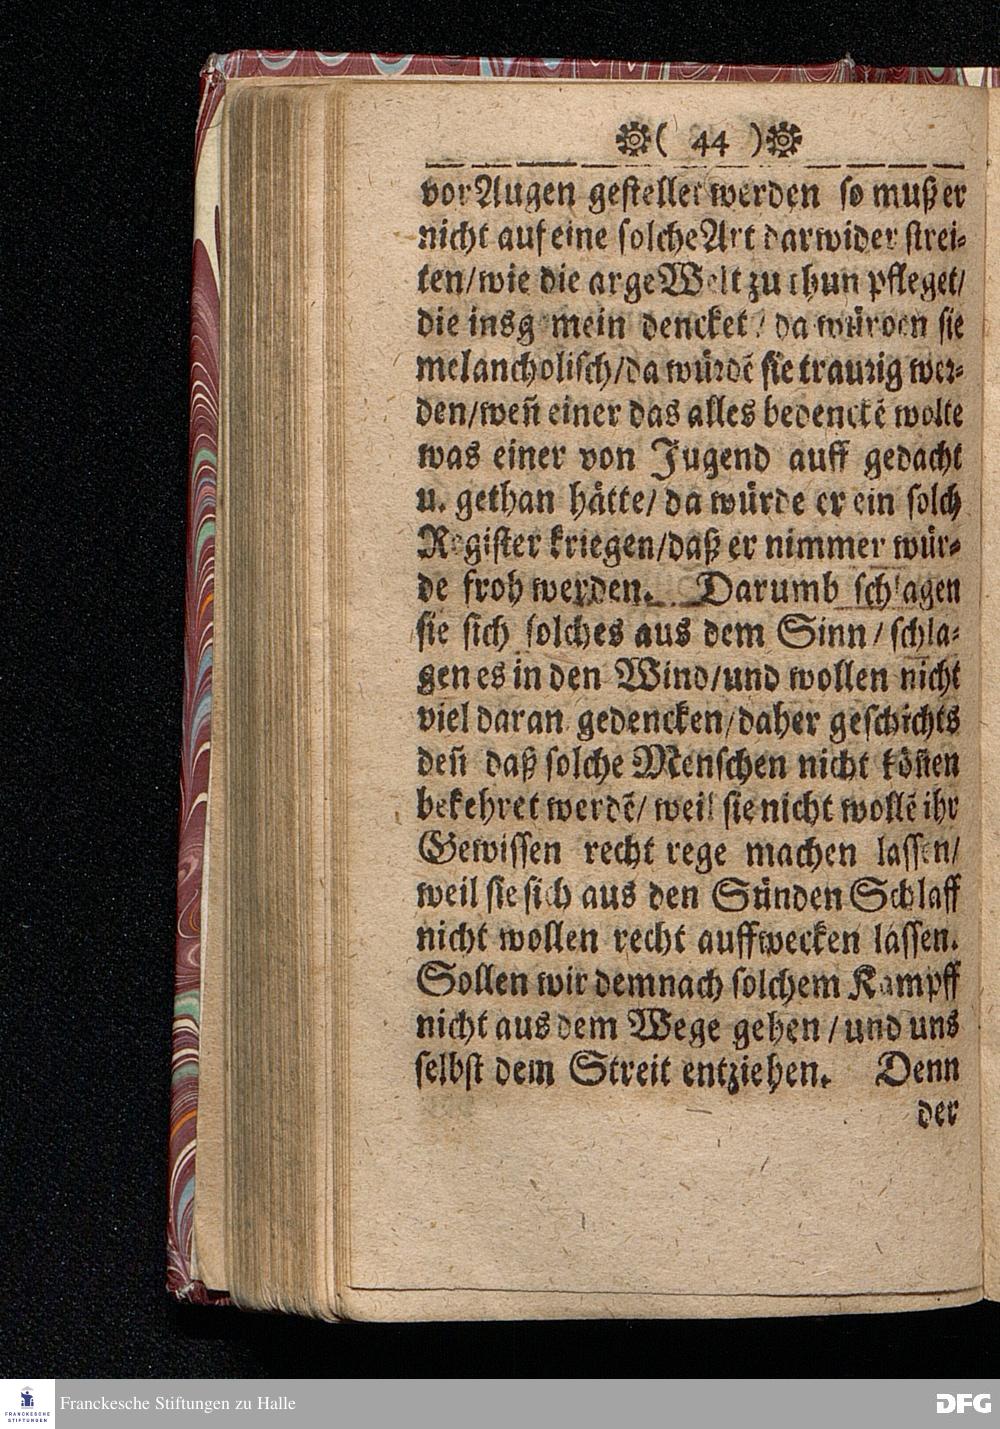 ( 44 )
vor Augen gestellet werden so muß er
nicht auf eine solche Art darwider strei-
ten/wie die arge Welt zu thun pfleget/
die insgemein dencket / da würden sie
melancholisch/da würdē sie traurig wer-
den/weñ einer das alles bedenckē wolte
was einer von Jugend auff gedacht
u. gethan hätte/ da würde er ein solch
Register kriegen/daß er nimmer wür-
de froh werden. Darumb schlagen
sie sich solches aus dem Sinn / schla-
gen es in den Wind/und wollen nicht
viel daran gedencken/daher geschichts
deñ daß solche Menschen nicht köñen
bekehret werdē/ weil sie nicht wollē ihr
Gewissen recht rege machen lassen/
weil sie sich aus den Sünden Schlaff
nicht wollen recht auffwecken lassen.
Sollen wir demnach solchem Kampff
nicht aus dem Wege gehen / und uns
selbst dem Streit entziehen. Denn
der
FRANCKESCHE STIFTUNGEN
Franckesche Stiftungen zu Halle
DFG